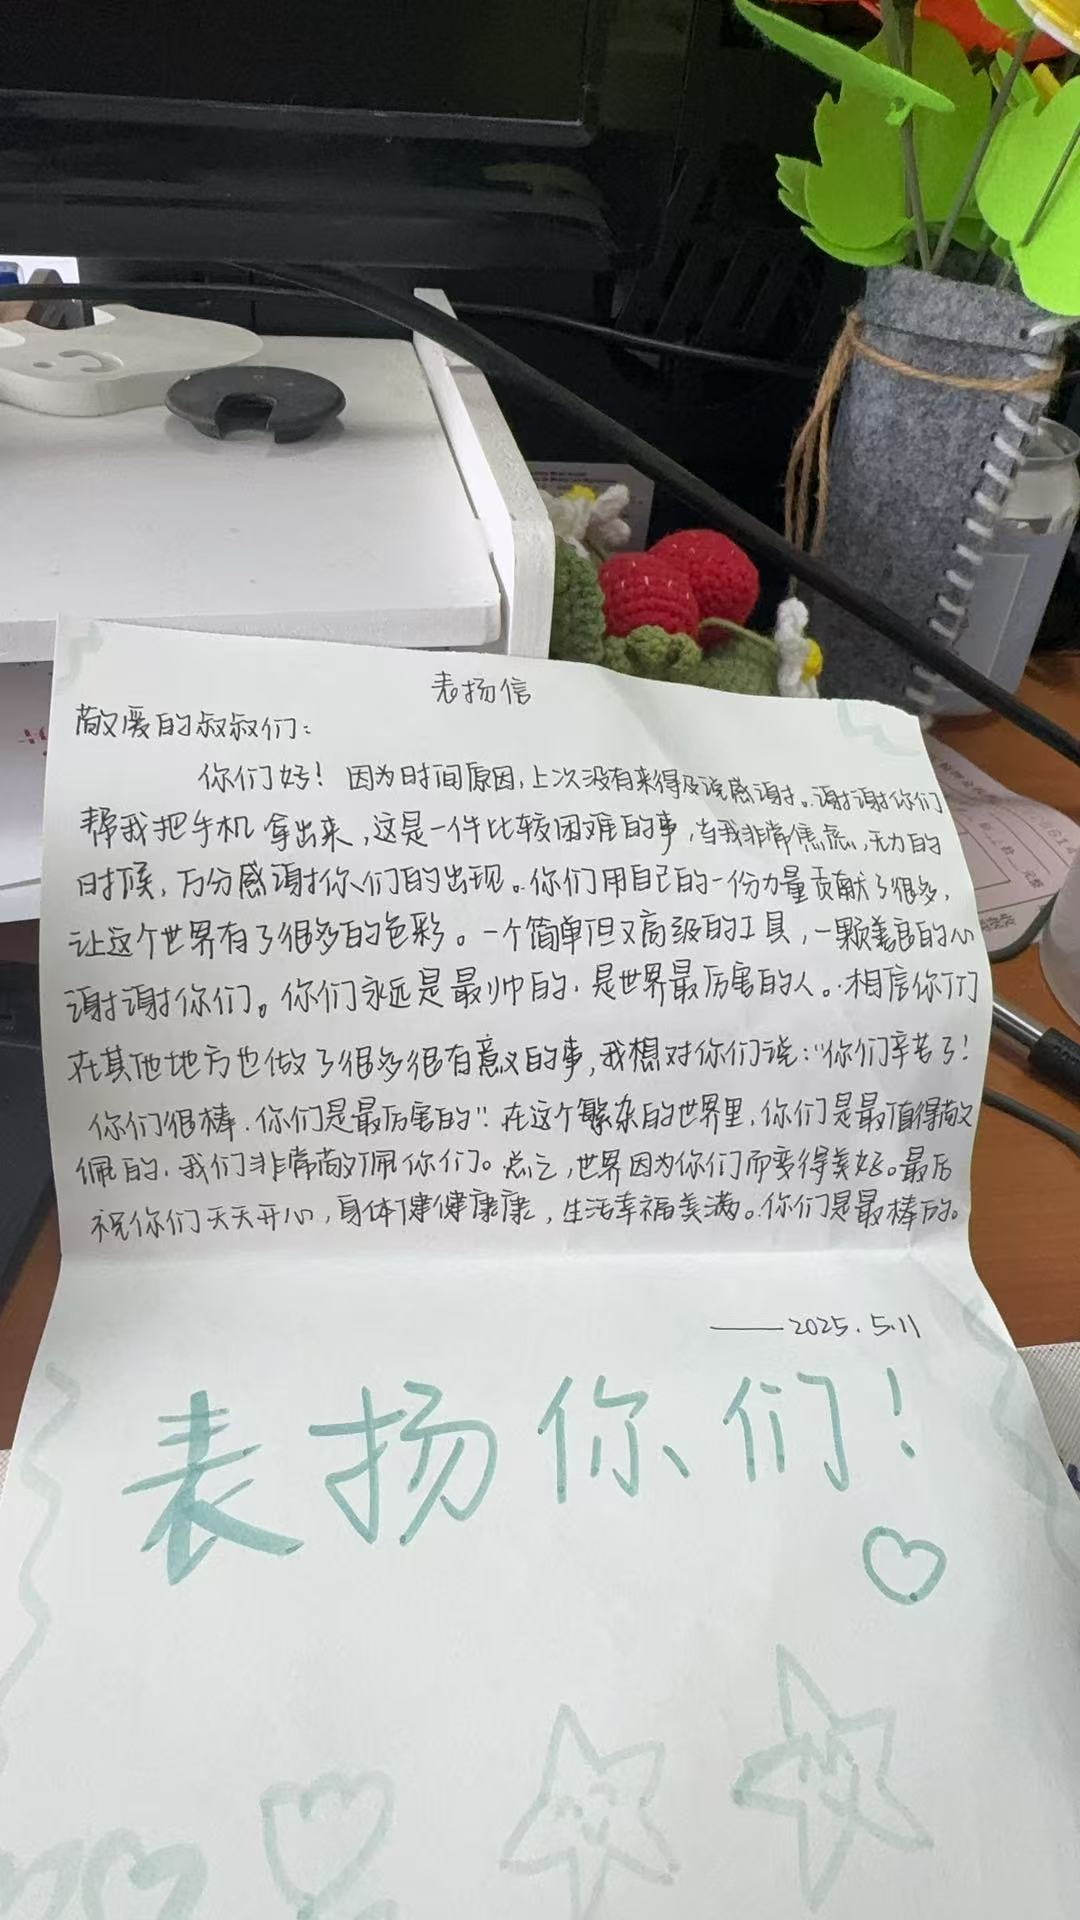 表扬信
敬爱的叔叔们：
你们好！因为时间原因，上次没有来得及说感谢。谢谢你们
帮我把手机拿出来，这是一件比较困难的事，当我非常焦虑，无力的
时候，万分感谢你们的出现。你们用自己的一份力量贡献了很多，
让这个世界有了很多的色彩。一个简单但又高级的工具，一颗善良的心
谢谢你们。你们永远是最帅的，是世界最厉害的人。相信你们
在其他地方也做了很多很有意义的事，我想对你们说：“你们辛苦了！
你们很棒，你们是最厉害的”在这个繁杂的世界里，你们是最值得敬
佩的，我们非常敬佩你们。总之，世界因为你们而变得美好。最后
祝你们天天开心，身体健健康康，生活幸福美满。你们是最棒的。
——2025.5.11
表扬你们！